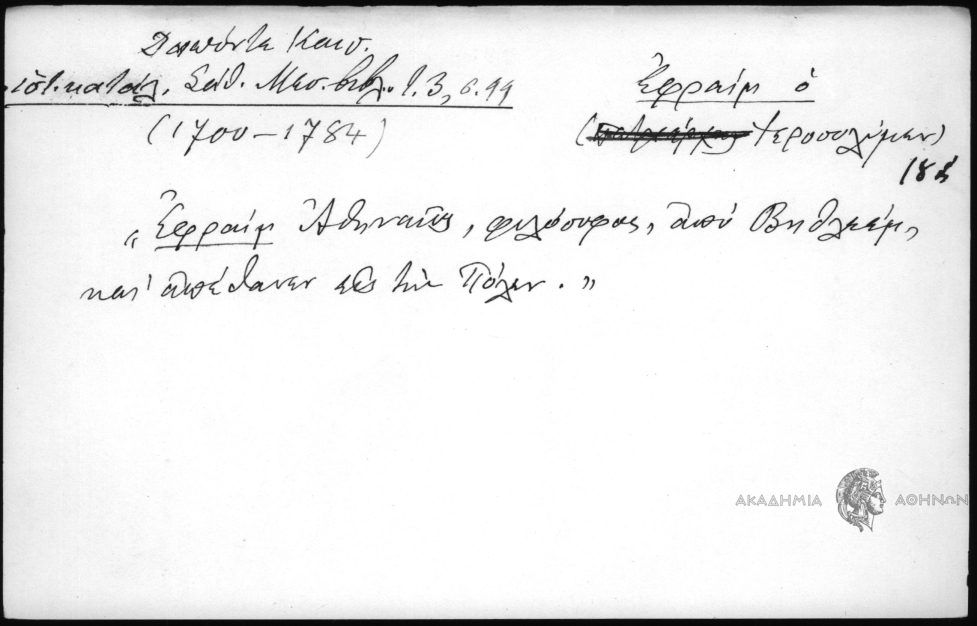 Δαπόντε Καισ.
ἱστ. κατάλ. Σάθ. Μεσ. βιβλ. τ. 3, σ. 99
(1700-1784)
Ἐφραίμ ὁ
(Ἱεροσολύμων)
18
"Ἐφραίμ Ἀθηναῖος, φιλόσοφος, ἀπό Βηθλεέμ,
καί ἀπέθανεν εἰς τήν Πόλιν."
ΑΚΑΔΗΜΙΑ ΑΘΗΝΩΝ